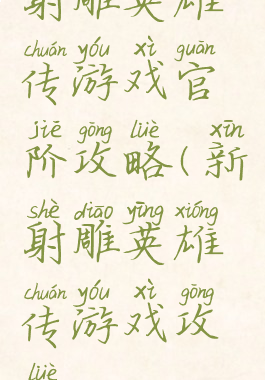 射雕英雄
chuán yóu xì guān
传游戏官
jiē gōng lüè xīn
阶攻略(新
shè diāo yīng xióng
射雕英雄
chuán yóu xì gōng
传游戏攻
lüè